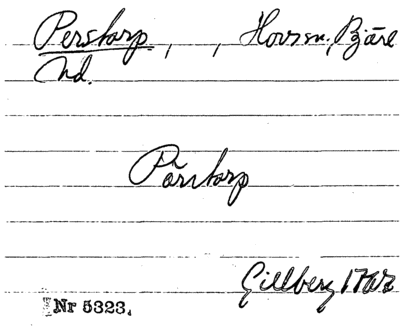 Perstorp, , Hovs sn, Bjäre
hd.
Pärstorp
Gillberg 1767
Nr 5323.